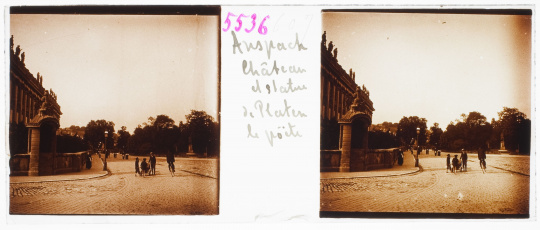 5536
Anspach
Château
et statue
de Platen
le poëte